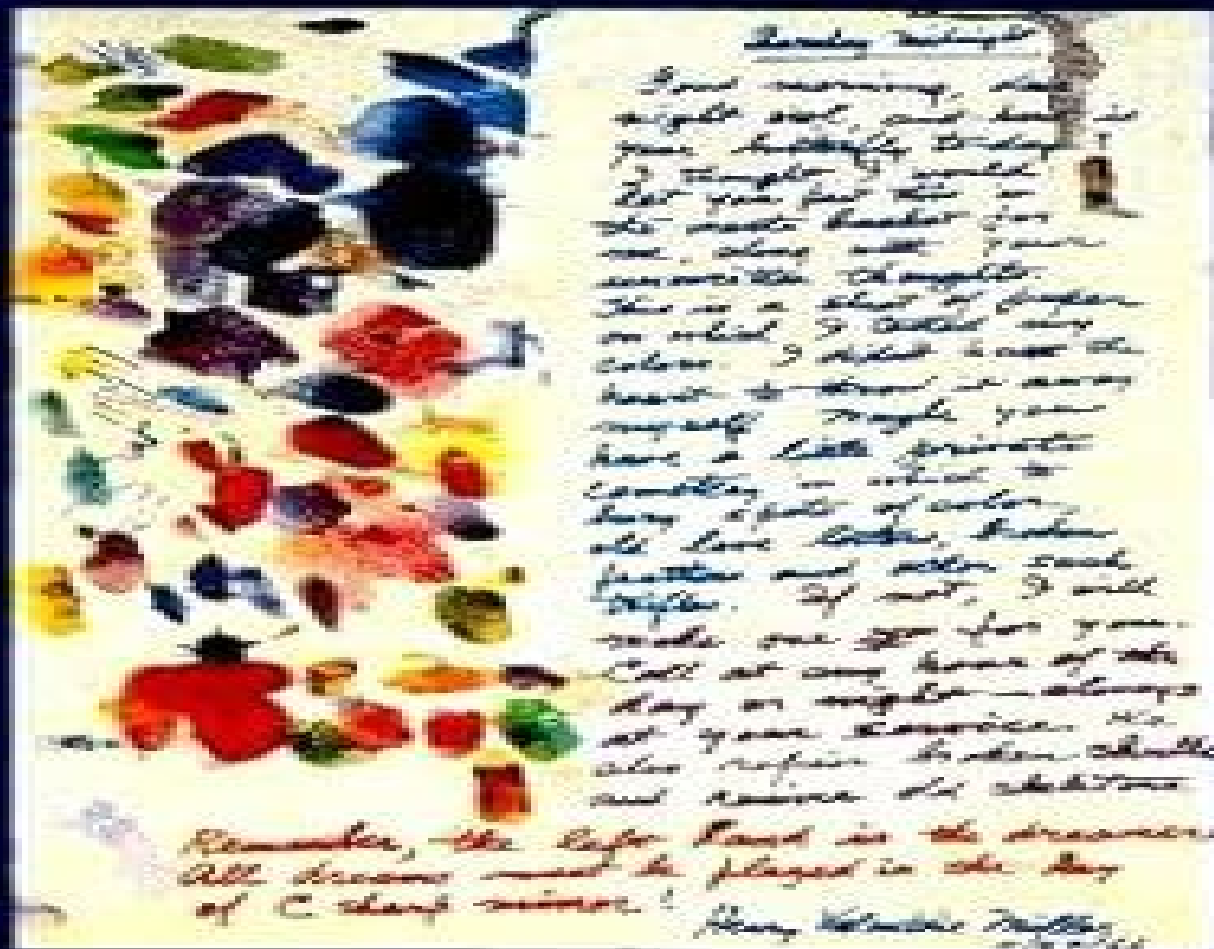 Thursday Midnight
Good morning, dear
night owl, and how is
your butterfly to-day?
I thought I would
let you put this in
the waste basket for
me, along with your
unwritten thoughts.
This is a sheet of paper
on which I tested my
colors. I didn't have the
heart to throw it away
myself. Maybe you
have a little private
cemetery in which to
bury spots of color,
old love letters, broken
and other such
trifles. If not, I will
make one for you.
Call at any hour of the
day or night — always
at your service. We
also repair broken
and revive old skeletons
Remember, the left hand is the dreamer.
All dreams must be played in the key
of C sharp minor!
Henry Miller